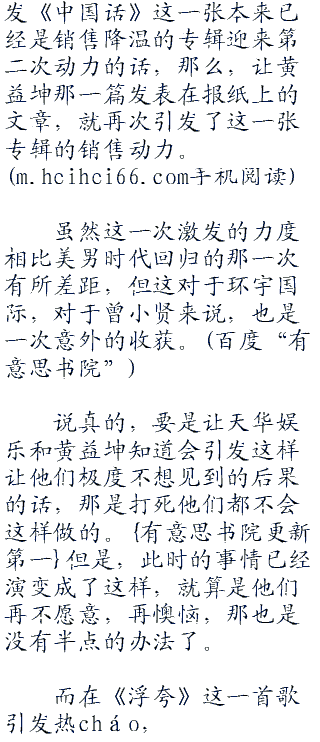 发《中国话》这一张本来已
经是销售降温的专辑迎来第
二次动力的话，那么，让黄
益坤那一篇发表在报纸上的
文章，就再次引发了这一张
专辑的销售动力。
(m.hcihci66.com手机阅读)
虽然这一次激发的力度
相比美男时代回归的那一次
有所差距，但这对于环宇国
际，对于曾小贤来说，也是
一次意外的收获。(百度“有
意思书院”)
说真的，要是让天华娱
乐和黄益坤知道会引发这样
让他们极度不想见到的后果
的话，那是打死他们都不会
这样做的。{有意思书院更新
第一}但是，此时的事情已经
演变成了这样，就算是他们
再不愿意，再懊恼，那也是
没有半点的办法了。
而在《浮夸》这一首歌
引发热cháo，